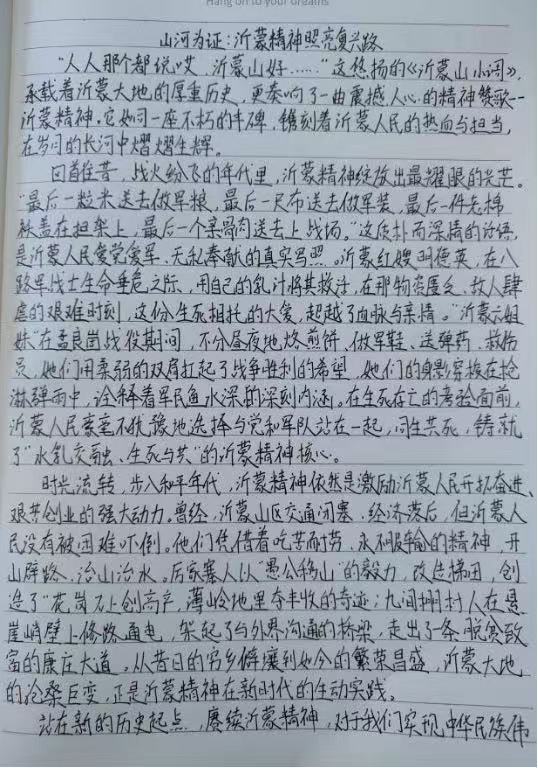 Hang on to your dreams
山河为证:沂蒙精神照亮复兴路
"人人那个都说哎,沂蒙山好……"这悠扬的《沂蒙山小调》,
承载着沂蒙大地的厚重历史,更奏响了一曲震撼人心的精神赞歌--
沂蒙精神。它如同一座不朽的丰碑,镌刻着沂蒙人民的热血与担当,
在岁月的长河中熠熠生辉。
回首往昔,战火纷飞的年代里,沂蒙精神绽放出最耀眼的光芒。
"最后一粒米送去做军粮,最后一尺布送去做军装,最后一件老棉
袄盖在担架上,最后一个亲骨肉送去上战场。"这质朴而深情的话语,
是沂蒙人民爱党爱军、无私奉献的真实写照。沂蒙红嫂明德英,在八
路军战士生命垂危之际,用自己的乳汁将其救活,在那物资匮乏、敌人肆
虐的艰难时刻,这份生死相托的大爱,超越了血脉与亲情。"沂蒙六姐
妹"在孟良崮战役期间,不分昼夜地烙煎饼、做军鞋、送弹药、救伤
员,她们用柔弱的双肩扛起了战争胜利的希望,她们的身影穿梭在枪
淋弹雨中,诠释着军民鱼水深的深刻内涵。在生死存亡的考验面前,
沂蒙人民毫不犹豫地选择与党和军队站在一起,同生共死,铸就
了"水乳交融、生死与共"的沂蒙精神核心。
时光流转,步入和平年代,沂蒙精神依然是激励沂蒙人民开拓奋进、
艰苦创业的强大动力。曾经,沂蒙山区交通闭塞、经济落后,但沂蒙人
民没有被困难吓倒。他们凭借着吃苦耐劳、永不服输的精神,开
山辟路、治山治水。厉家寨人以"愚公移山"的毅力,改造梯田,创
造了"花岗石上创高产,薄岭地里夺丰收的奇迹;九间棚村人在悬
崖峭壁上修路通电,架起了与外界沟通的桥梁,走出了一条脱贫致
富的康庄大道。从昔日的穷乡僻壤到如今的繁荣昌盛,沂蒙大地
的沧桑巨变,正是沂蒙精神在新时代的生动实践。
站在新的历史起点,赓续沂蒙精神,对于我们实现中华民族伟